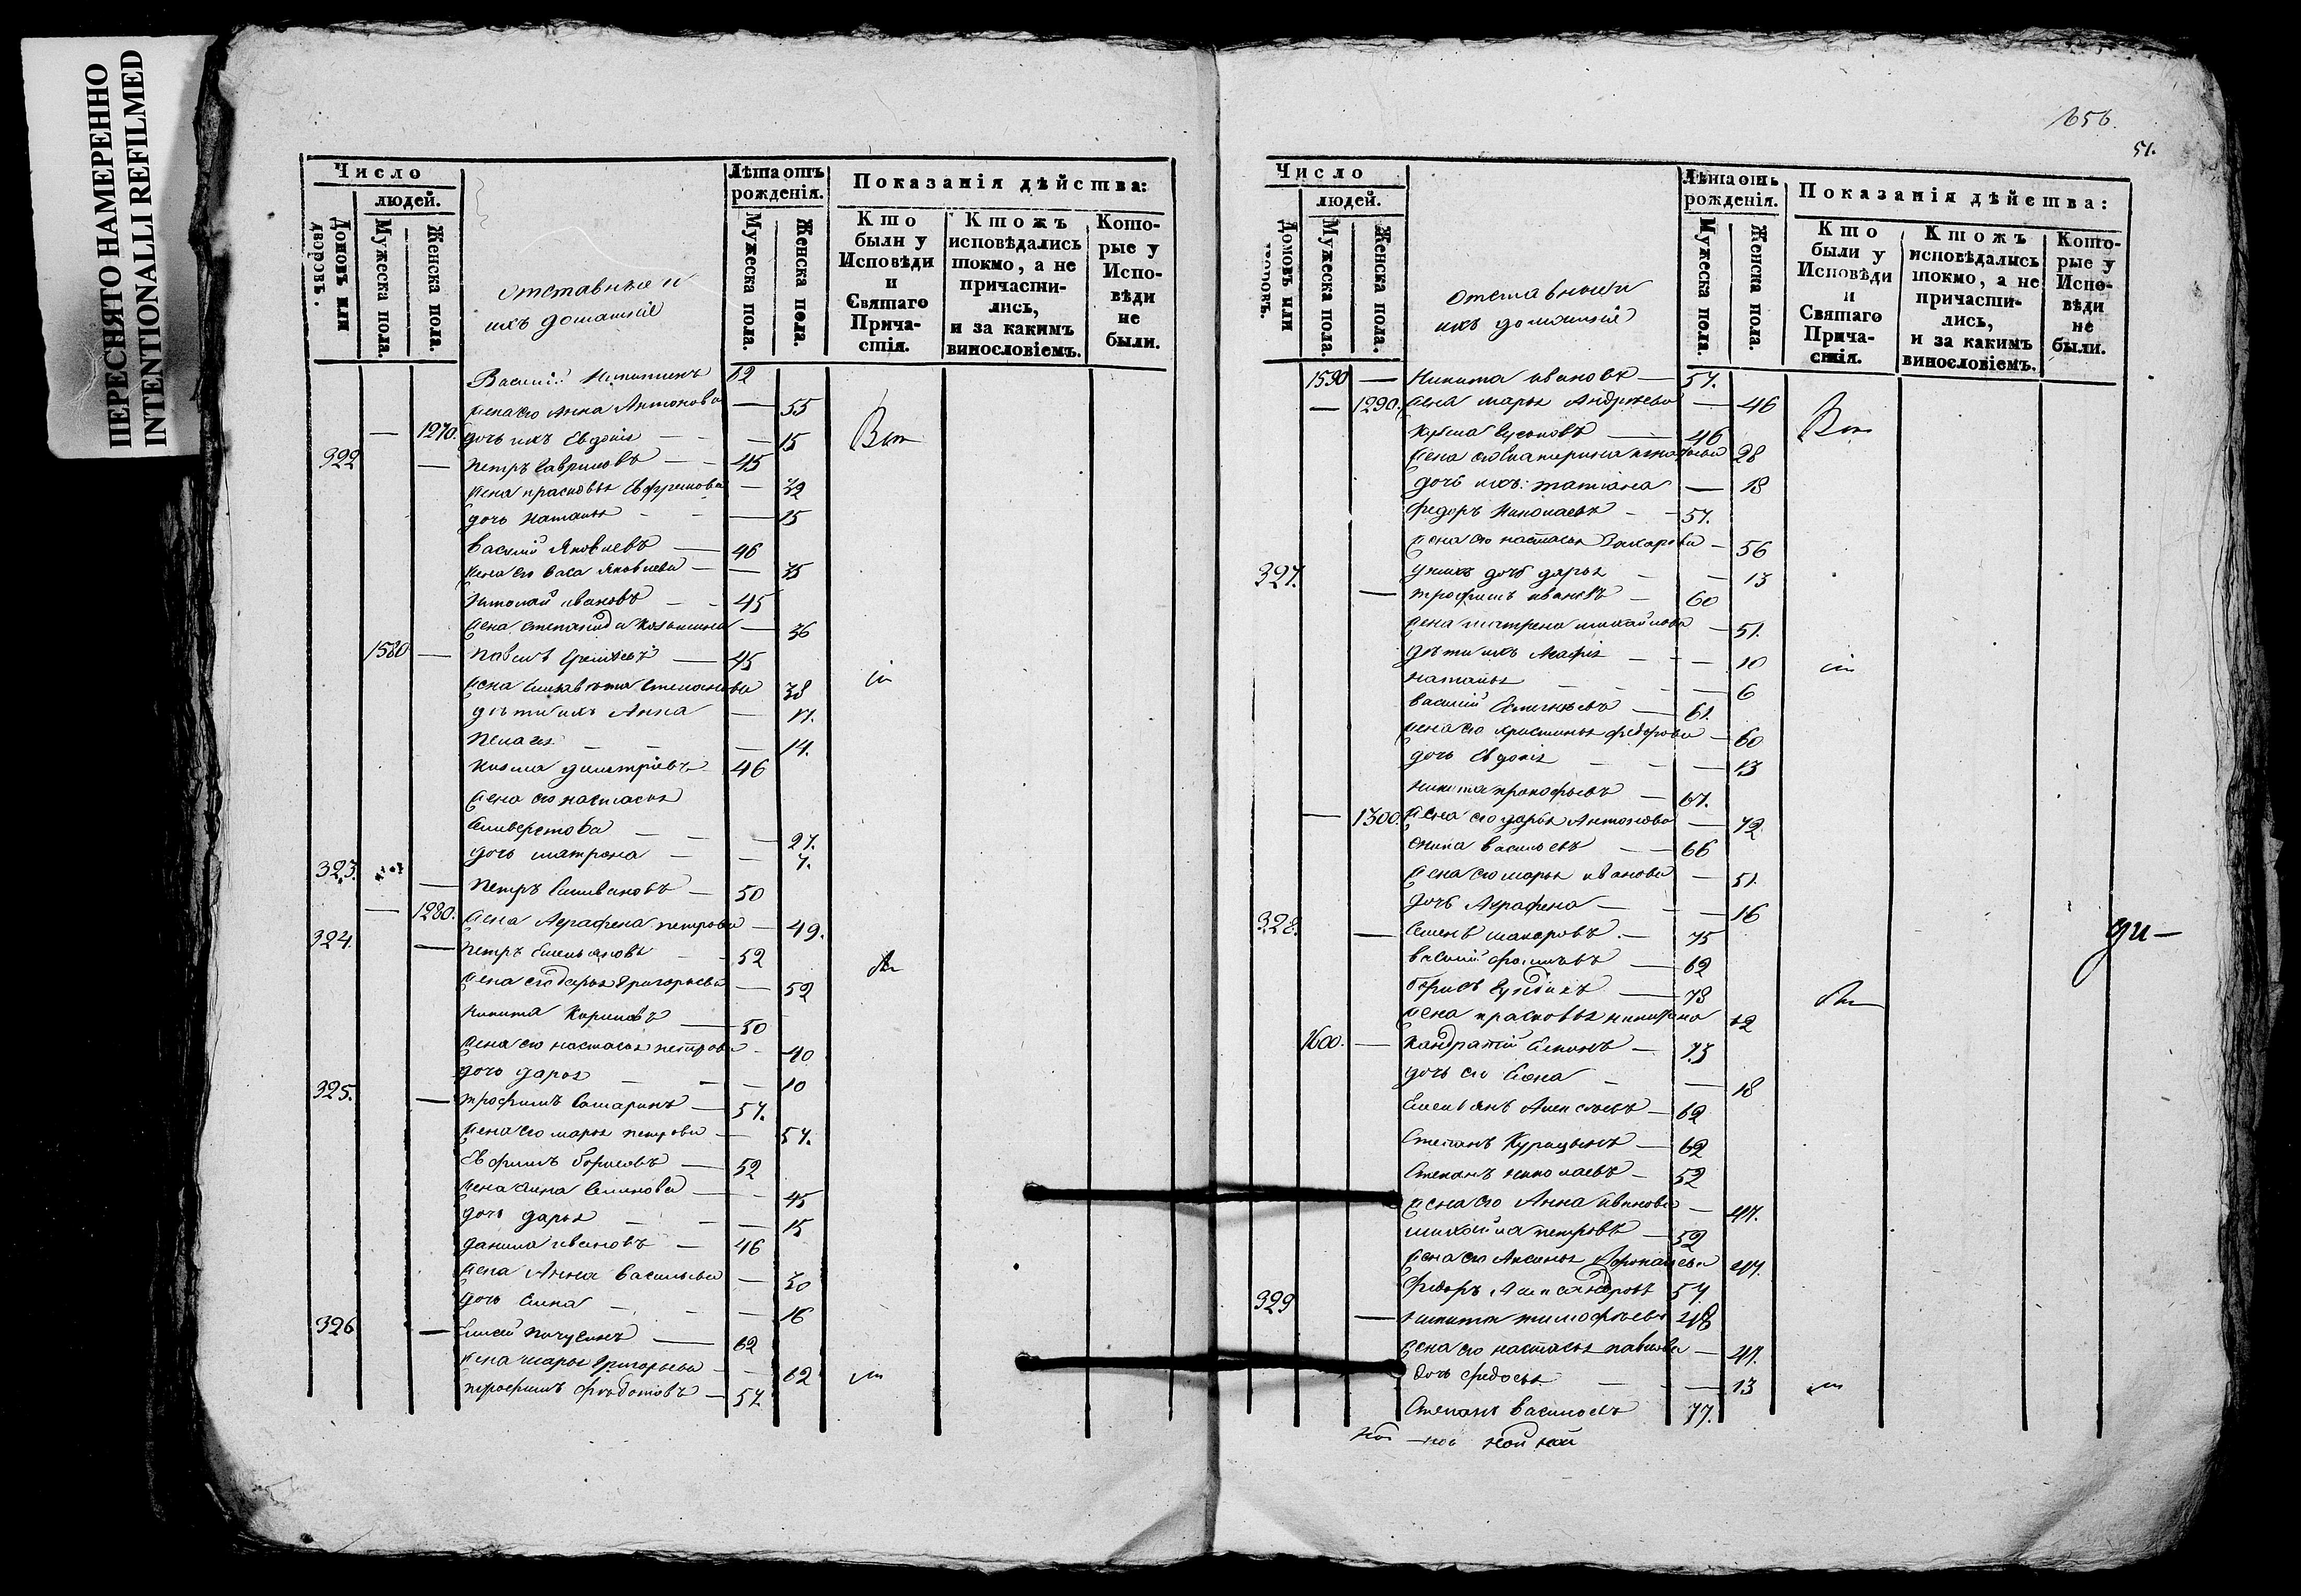 ПЕРЕСНЯТО НАМЕРЕННО
INTENTIONALLI REFILMED
Число
людей.
Домовъ или дворовъ.
Мужеска пола.
Женска пола.
отставные и
ихъ домашніе
Лѣта отъ рожденія.
Мужеска пола.
Женска пола.
Показанія дѣйства:
Кто были у Исповѣди и Святаго Прича-стія.
Ктожъ исповѣдались токмо, а не причасти-лись, и за какимъ винословіемъ.
Кото-рые у Испо-вѣди не были.
Василій Никитинъ 62
жена его Анна Антонова — 55
— 1270. дочь ихъ Евдокія — 15
322 — Петръ Гавриловъ — 45
жена прасковья Ефремова — 32
дочь Наталья — 15
Василій Яковлевъ — 46
жена его Васа Яковлева — 35
Николай Ивановъ — 45
жена степанида Козьмина — 36
1580 — Павелъ — 45
жена Елизавета Степанова 38
дѣти ихъ Анна — 17.
Пелагея — 14.
Козма димитріевъ 46
жена его настасья
Селиверстова — 27.
дочь матрона — 7.
323. — Петръ Селивановъ — 50
— 1280. жена Аграфена петрова — 49.
324 — Петръ Емельяновъ — 52
жена его дарья Григорьева — 52
никита Кириловъ — 50
жена его настасья петрова — 40
дочь дарья — 10
325. — трофимъ — 57.
жена его марья петрова — 57.
Ефимъ борисовъ — 52
жена анна Семенова — 45
дочь дарья — 15
данила ивановъ — 46
жена Анна васильева — 30
дочь Елена — 16
326 — Елисей — 62
жена марья Григорьева — 62
трофимъ федотовъ — 57
656.
51.
Число
людей.
Домовъ или дворовъ.
Мужеска пола.
Женска пола.
отставные и
ихъ домашніе
Лѣта отъ рожденія.
Мужеска пола.
Женска пола.
Показанія дѣйства:
Кто были у Исповѣди и Святаго Прича-стія.
Ктожъ исповѣдались токмо, а не причасти-лись, и за какимъ винословіемъ.
Кото-рые у Испо-вѣди не были.
1590 — Никита ивановъ — 57.
— 1290. жена марья Андреева — 46
Кузма — 46
жена его Екатерина 28
дочь ихъ татіана — 18
федоръ Николаевъ — 57.
жена его настасья Захарова — 56
у нихъ дочь дарья — 13
327. — трофимъ ивановъ — 60
жена матрена михайлова — 51.
дѣти ихъ Агафія — 10
наталья — 6
василій — 61.
жена его федорова — 60
дочь Евдокія — 13
никита прокофьевъ — 67.
— 1300. жена его дарья Антонова — 72
василь евъ — 66
жена его марья иванова — 51.
дочь Аграфена — 16
328. — Семенъ макаровъ — 75
василій — 62
борисъ — 73
жена прасковья 62
1600. — Кандратій — 73
дочь его Елена — 18
Емельянъ Алексѣевъ — 62
Степанъ Курицынъ — 62
Степанъ николаевъ — 52
жена его Анна иванова — 47.
михайла петровъ — 52
жена его Аксинья 47.
Федоръ Александровъ 57
329 — никита тимофѣевъ 48
жена его настасья павлова — 47.
дочь федосья — 13
Степанъ васильевъ 77.